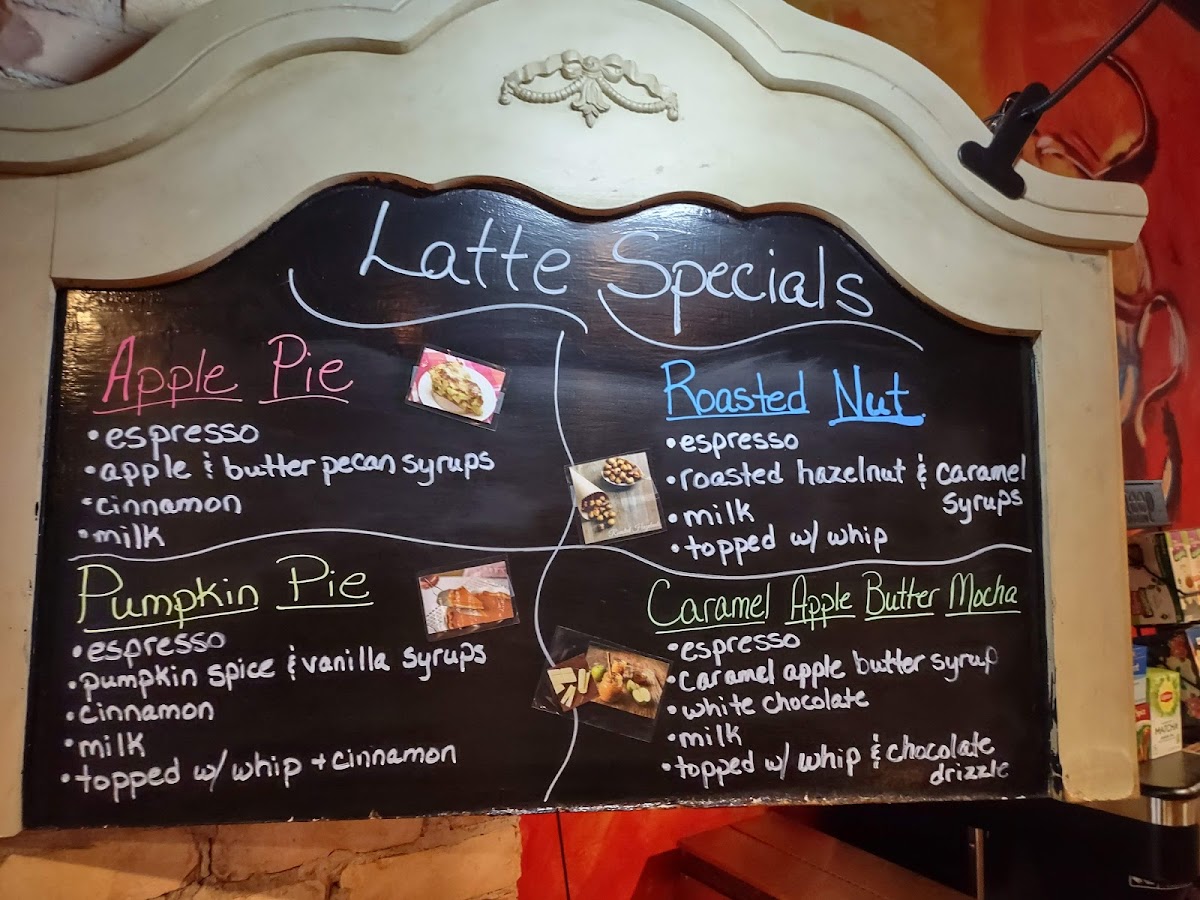 Latte Specials
Apple Pie
• espresso
• apple & butter pecan syrups
• cinnamon
• milk
Roasted Nut
• espresso
• roasted hazelnut & caramel
syrups
• milk
• topped w/ whip
Pumpkin Pie
• espresso
• pumpkin spice & vanilla syrups
• cinnamon
• milk
• topped w/ whip + cinnamon
Caramel Apple Butter Mocha
• espresso
• caramel apple butter syrup
• white chocolate
• milk
• topped w/ whip & chocolate
drizzle
Lipton
MATCHA